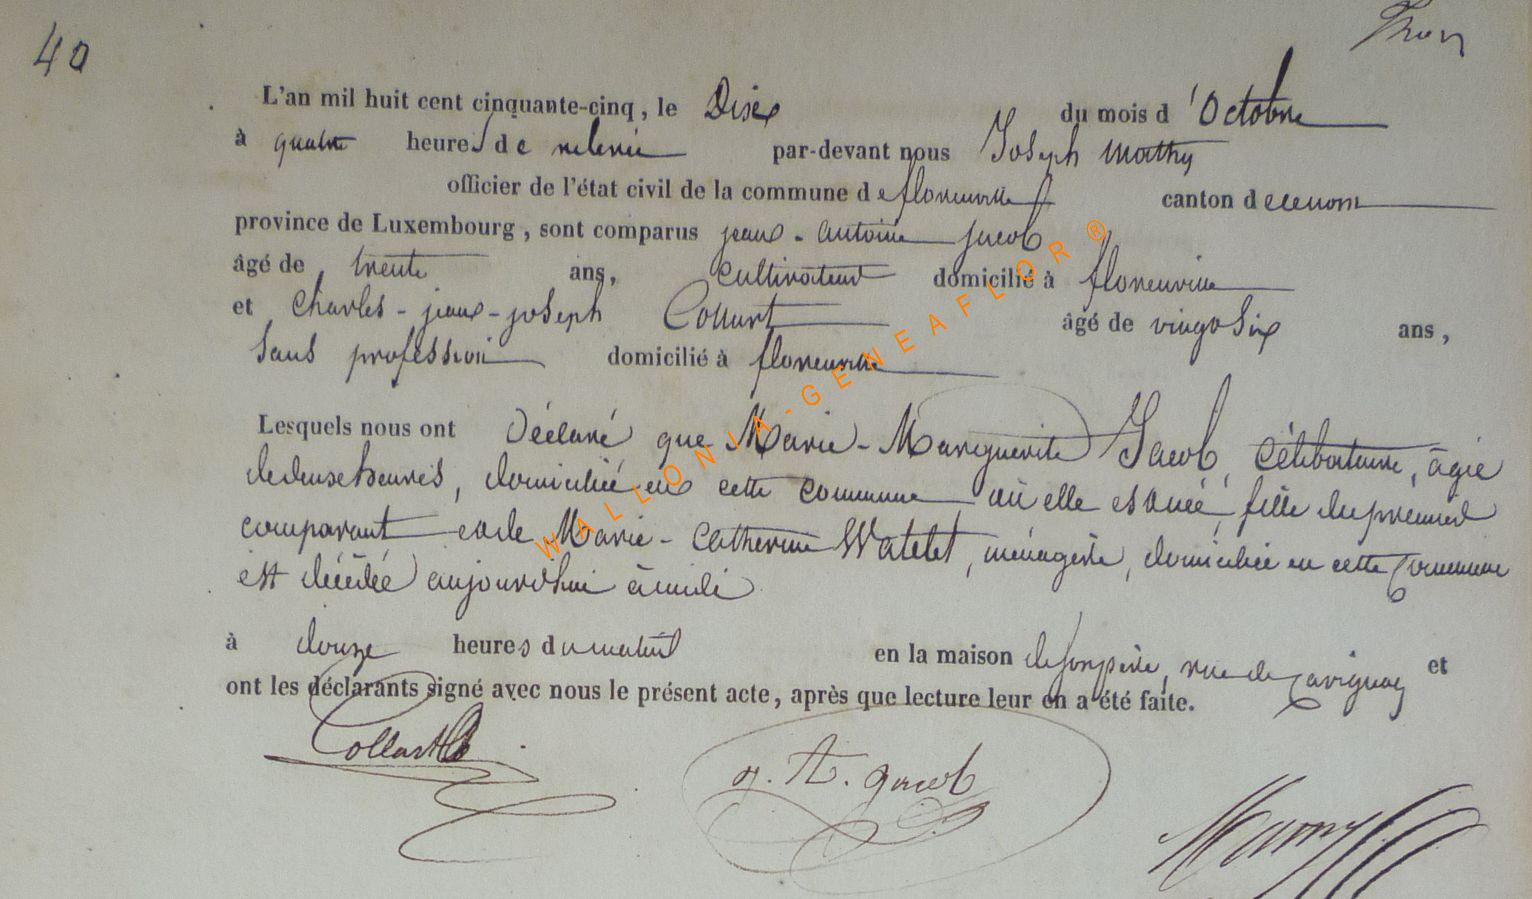 40
L'an mil huit cent cinquante-cinq, le Dix du mois d'Octobre
à quatre heures de relevée par-devant nous Joseph Mathy
officier de l'état civil de la commune de florenville canton de
province de Luxembourg, sont comparus jean-antoine jacob
âgé de trente ans, cultivateur domicilié à florenville
et Charles-jean-joseph Collart âgé de vingt six ans,
sans profession domicilié à florenville
Lesquels nous ont Déclaré que Marie-Marguerite Jacob, Célibataire, âgée
de deux heures, domiciliée en cette commune où elle est née, fille du premier
comparant et de Marie-Catherine Watelet, ménagère, domiciliée en cette Commune
est décédée aujourd'hui à midi
à douze heures du matin en la maison de son père, rue de et
ont les déclarants signé avec nous le présent acte, après que lecture leur en a été faite.
Collart
J. At. Jacob
WALLONIA-GENEAFLOR ®